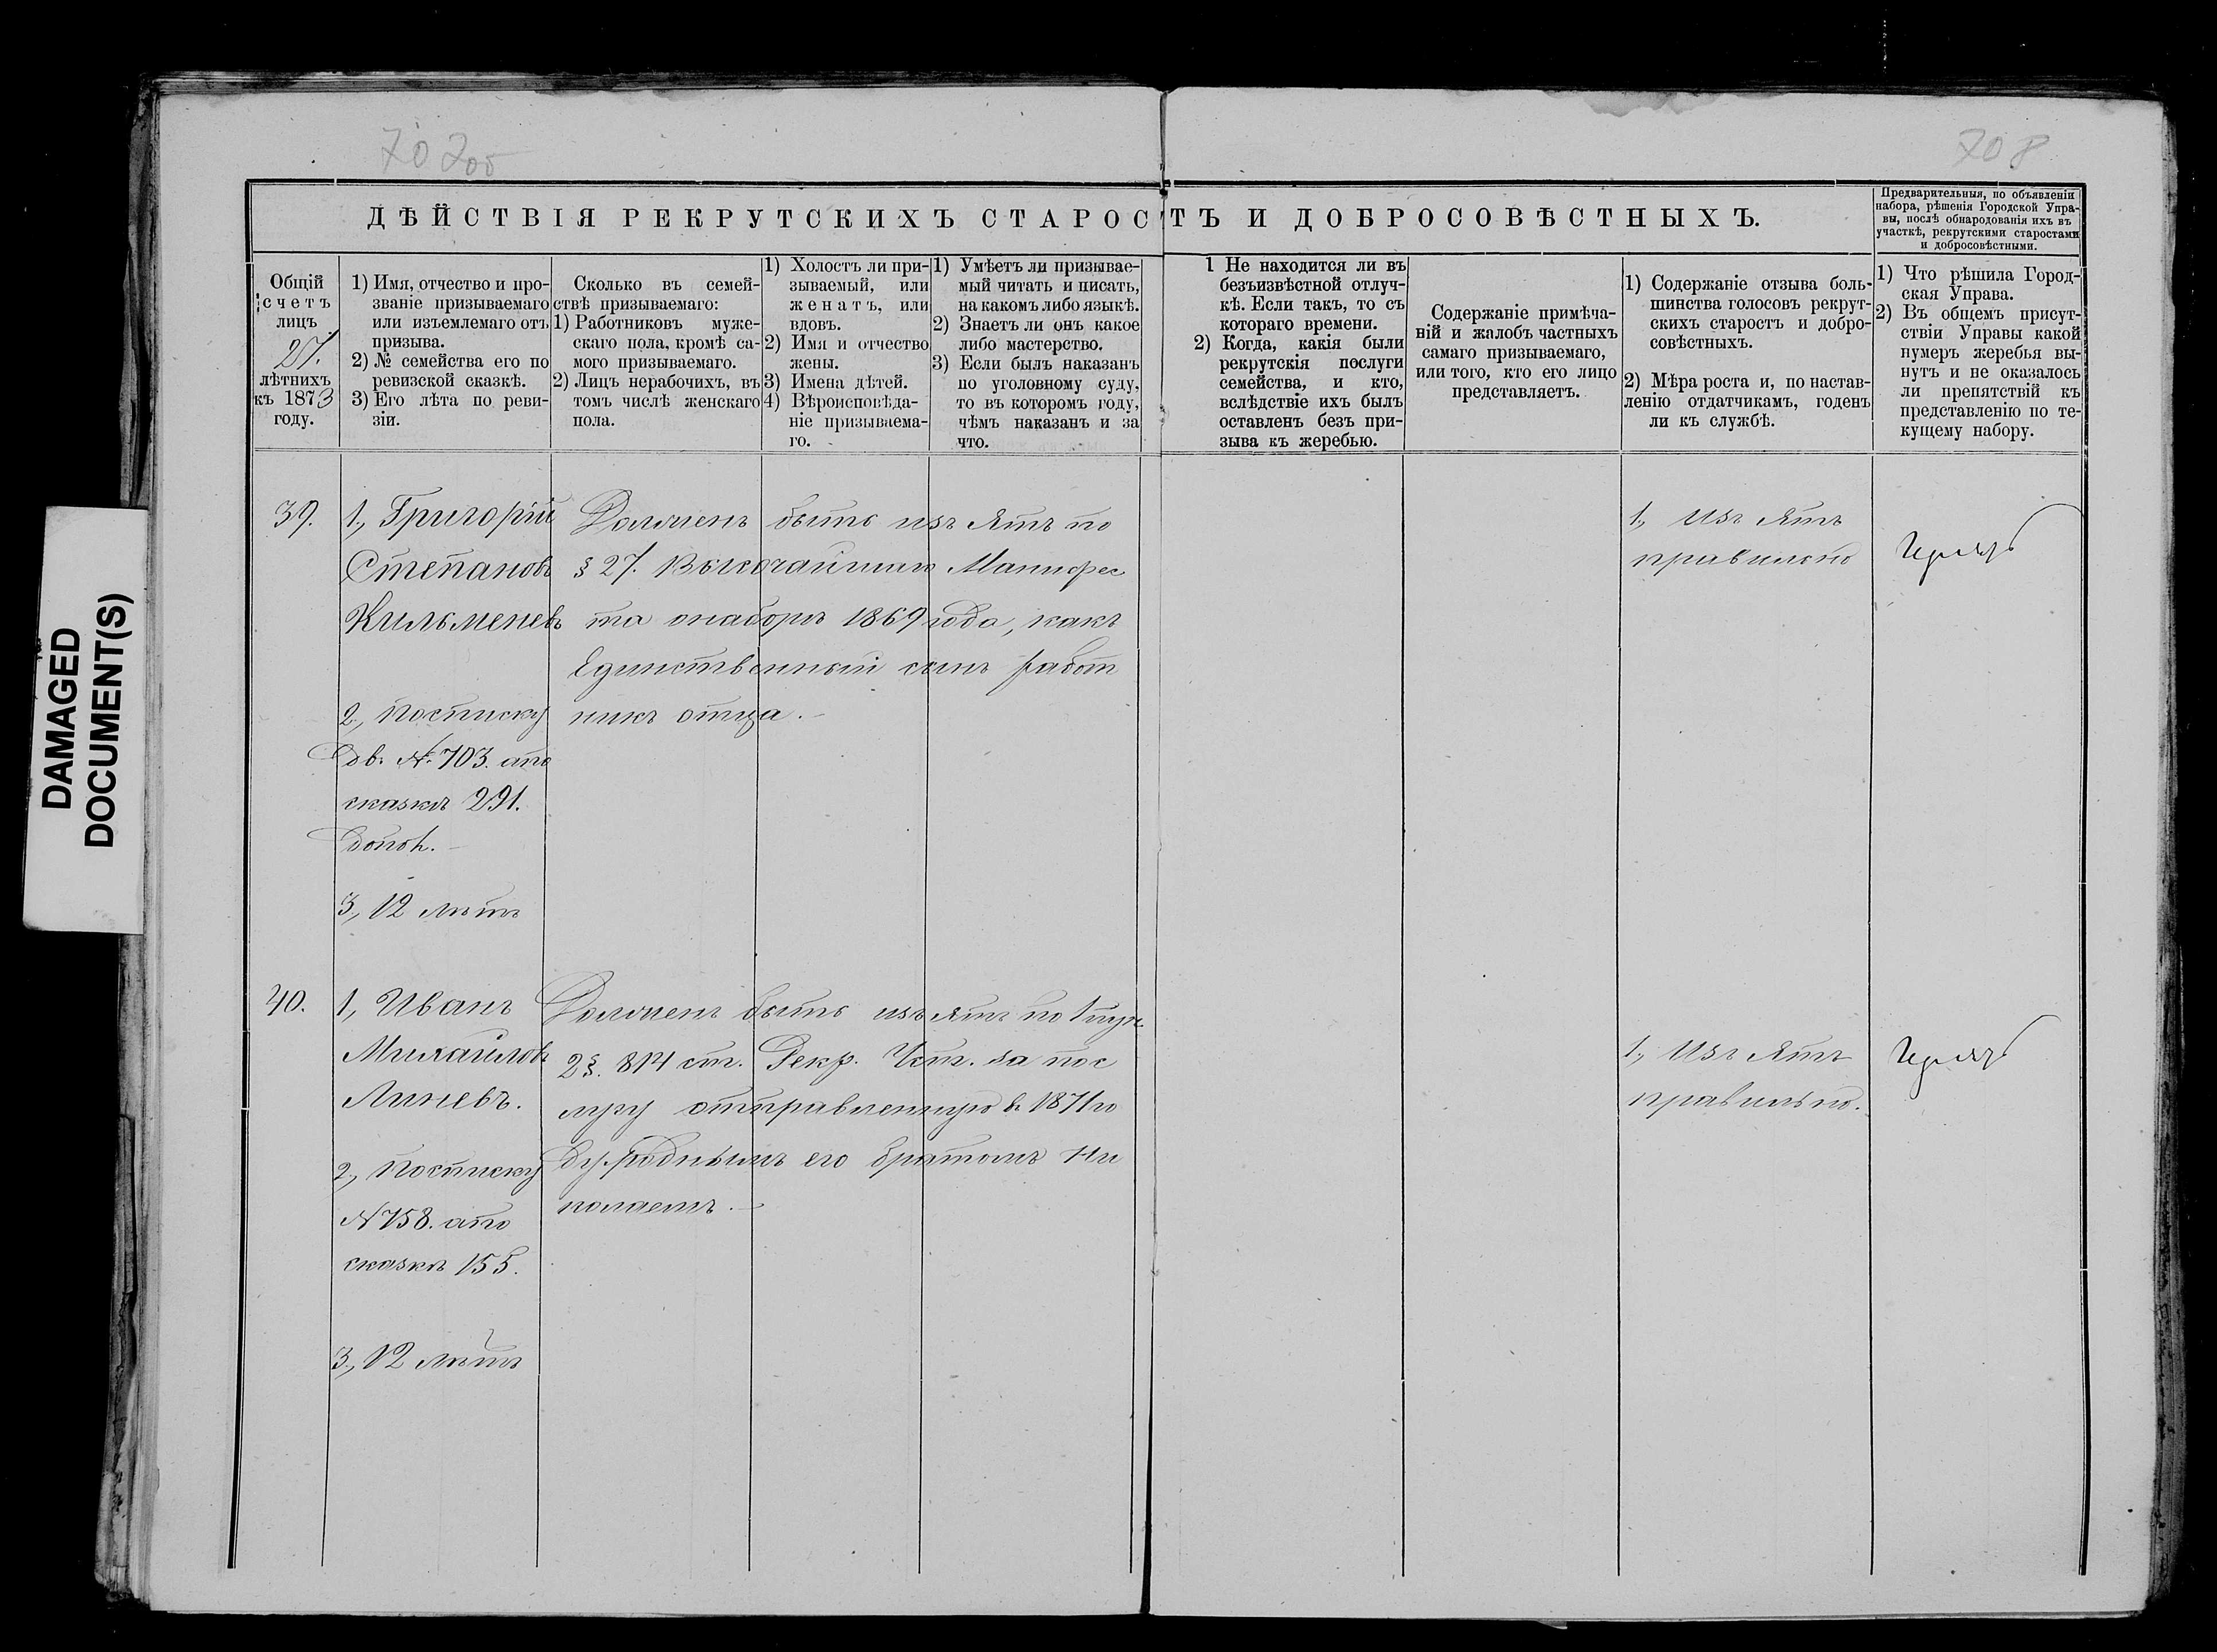 DAMAGED
DOCUMENT(S)
707 об
708
ДѢЙСТВІЯ РЕКРУТСКИХЪ СТАРОСТЪ И ДОБРОСОВѢСТНЫХЪ.
Предварительныя, по объявленіи
набора, рѣшенія Городской Упра-
вы, послѣ обнародованія ихъ въ
участкѣ, рекрутскими старостами
и добросовѣстными.
Общій
счетъ
лицъ
27.
лѣтнихъ
къ 1873
году.
1) Имя, отчество и про-
званіе призываемаго
или изъемлемаго отъ
призыва.
2) № семейства его по
ревизской сказкѣ.
3) Его лѣта по реви-
зіи.
Сколько въ семей-
ствѣ призываемаго:
1) Работниковъ муже-
скаго пола, кромѣ са-
мого призываемаго.
2) Лицъ нерабочихъ, въ
томъ числѣ женскаго
пола.
1) Холостъ ли при-
зываемый, или
женатъ, или
вдовъ.
2) Имя и отчество
жены.
3) Имена дѣтей.
4) Вѣроисповѣда-
ніе призываема-
го.
1) Умѣетъ ли призывае-
мый читать и писать,
на какомъ либо языкѣ.
2) Знаетъ ли онъ какое
либо мастерство.
3) Если былъ наказанъ
по уголовному суду,
то въ которомъ году,
чѣмъ наказанъ и за
что.
1 Не находится ли въ
безъизвѣстной отлуч-
кѣ. Если такъ, то съ
котораго времени.
2) Когда, какія были
рекрутскія послуги
семейства, и кто,
вслѣдствіе ихъ былъ
оставленъ безъ при-
зыва къ жеребью.
Содержаніе примѣча-
ній и жалобъ частныхъ
самаго призываемаго,
или того, кто его лицо
представляетъ.
1) Содержаніе отзыва боль-
шинства голосовъ рекрут-
скихъ старостъ и добро-
совѣстныхъ.
2) Мѣра роста и, по настав-
ленію отдатчикамъ, годенъ
ли къ службѣ.
1) Что рѣшила Город-
ская Управа.
2) Въ общемъ присут-
ствіи Управы какой
нумеръ жеребья вы-
нутъ и не оказалось
ли препятствій къ
представленію по те-
кущему набору.
39.
1, Григорій
Степановъ
Кильменевъ
2, По списку
дв. № 703. а по
сказкѣ 291.
допол.
3, 12 лѣтъ
Долженъ быть изъятъ по
§ 27. Высочайшаго Манифес
та о наборѣ 1869 года, какъ
Единственный сынъ работ
никъ отца.
1, Изъятъ
правильно
40.
1, Иванъ
Михайловъ
Линевъ.
2, По списку
№ 758. а по
сказкѣ 155.
3, 12 лѣтъ
Долженъ быть изъятъ по 1 пун.
2 §. 814 ст. Рекр. Уст. за пос
лугу отправленную въ 1871 го
ду родным его братомъ Ни
колаемъ.
1, Изъятъ
правильно.